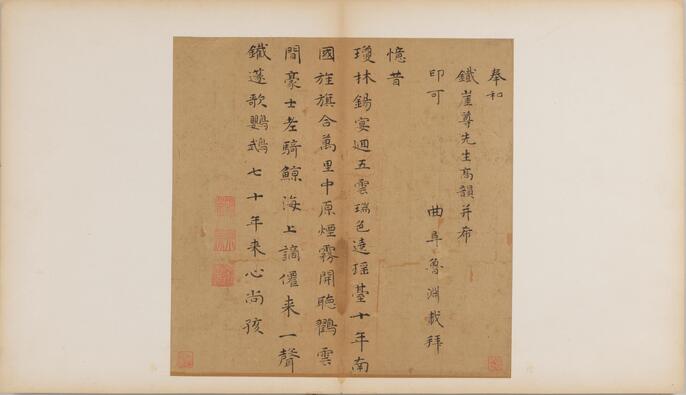 奉和
鐵崖尊先生高韻并希
印可
曲阜魯淵載拜
憶昔
瓊林錫宴迴五雲瑞色遶瑶臺十年南
國旌旗合萬里中原煙霧開聴鸛雲
間豪士老騎鯨海上謫僊来一聲
鐵篴歌鸚鵡七十年来心尚孩